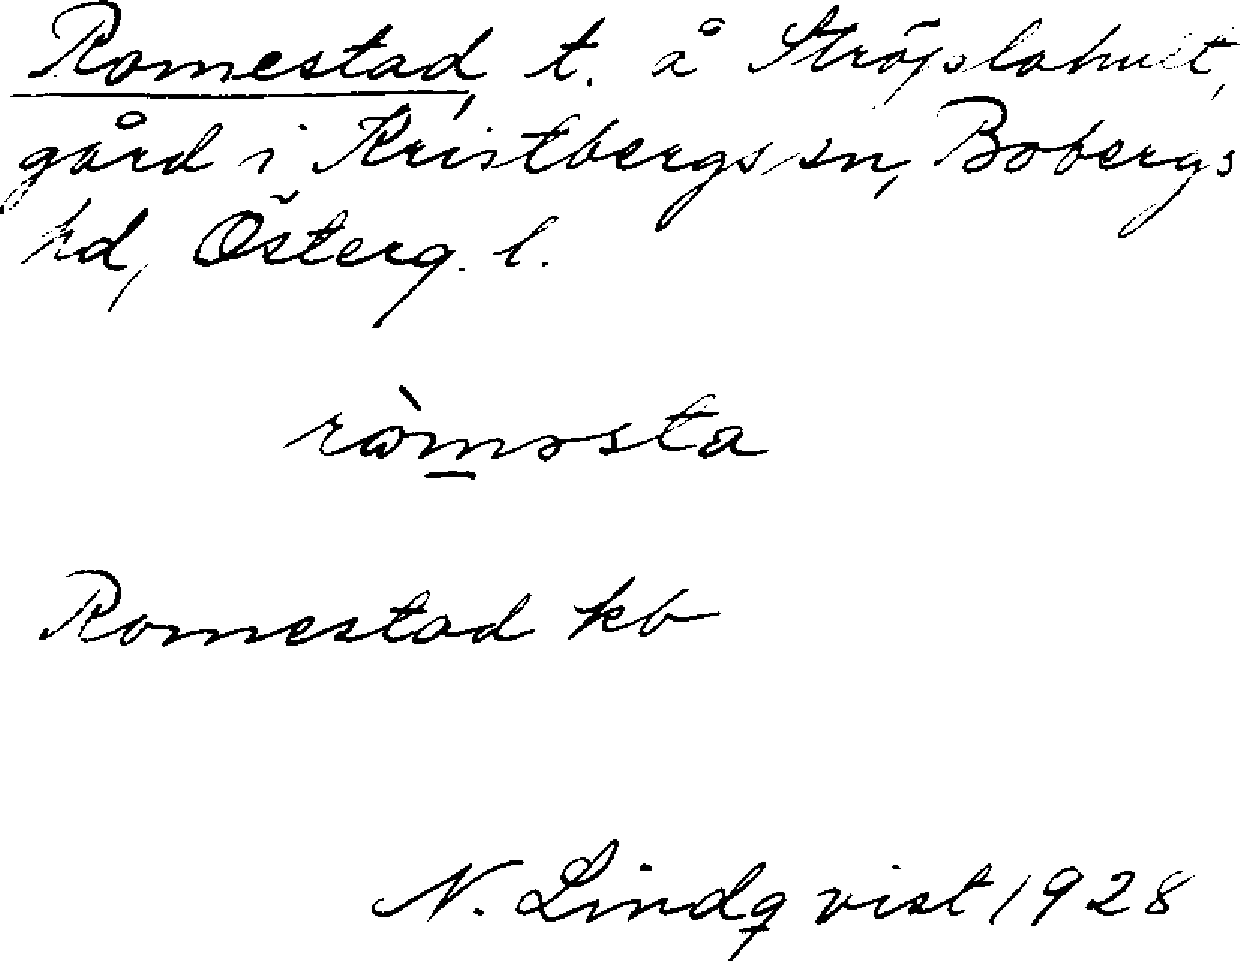 Romestad, t. å Ströjslahult,
gård i Kristbergs sn, Bobergs
hd, Österg. l.
ròmǝsta
Romestad kb
N. Lindqvist 1928